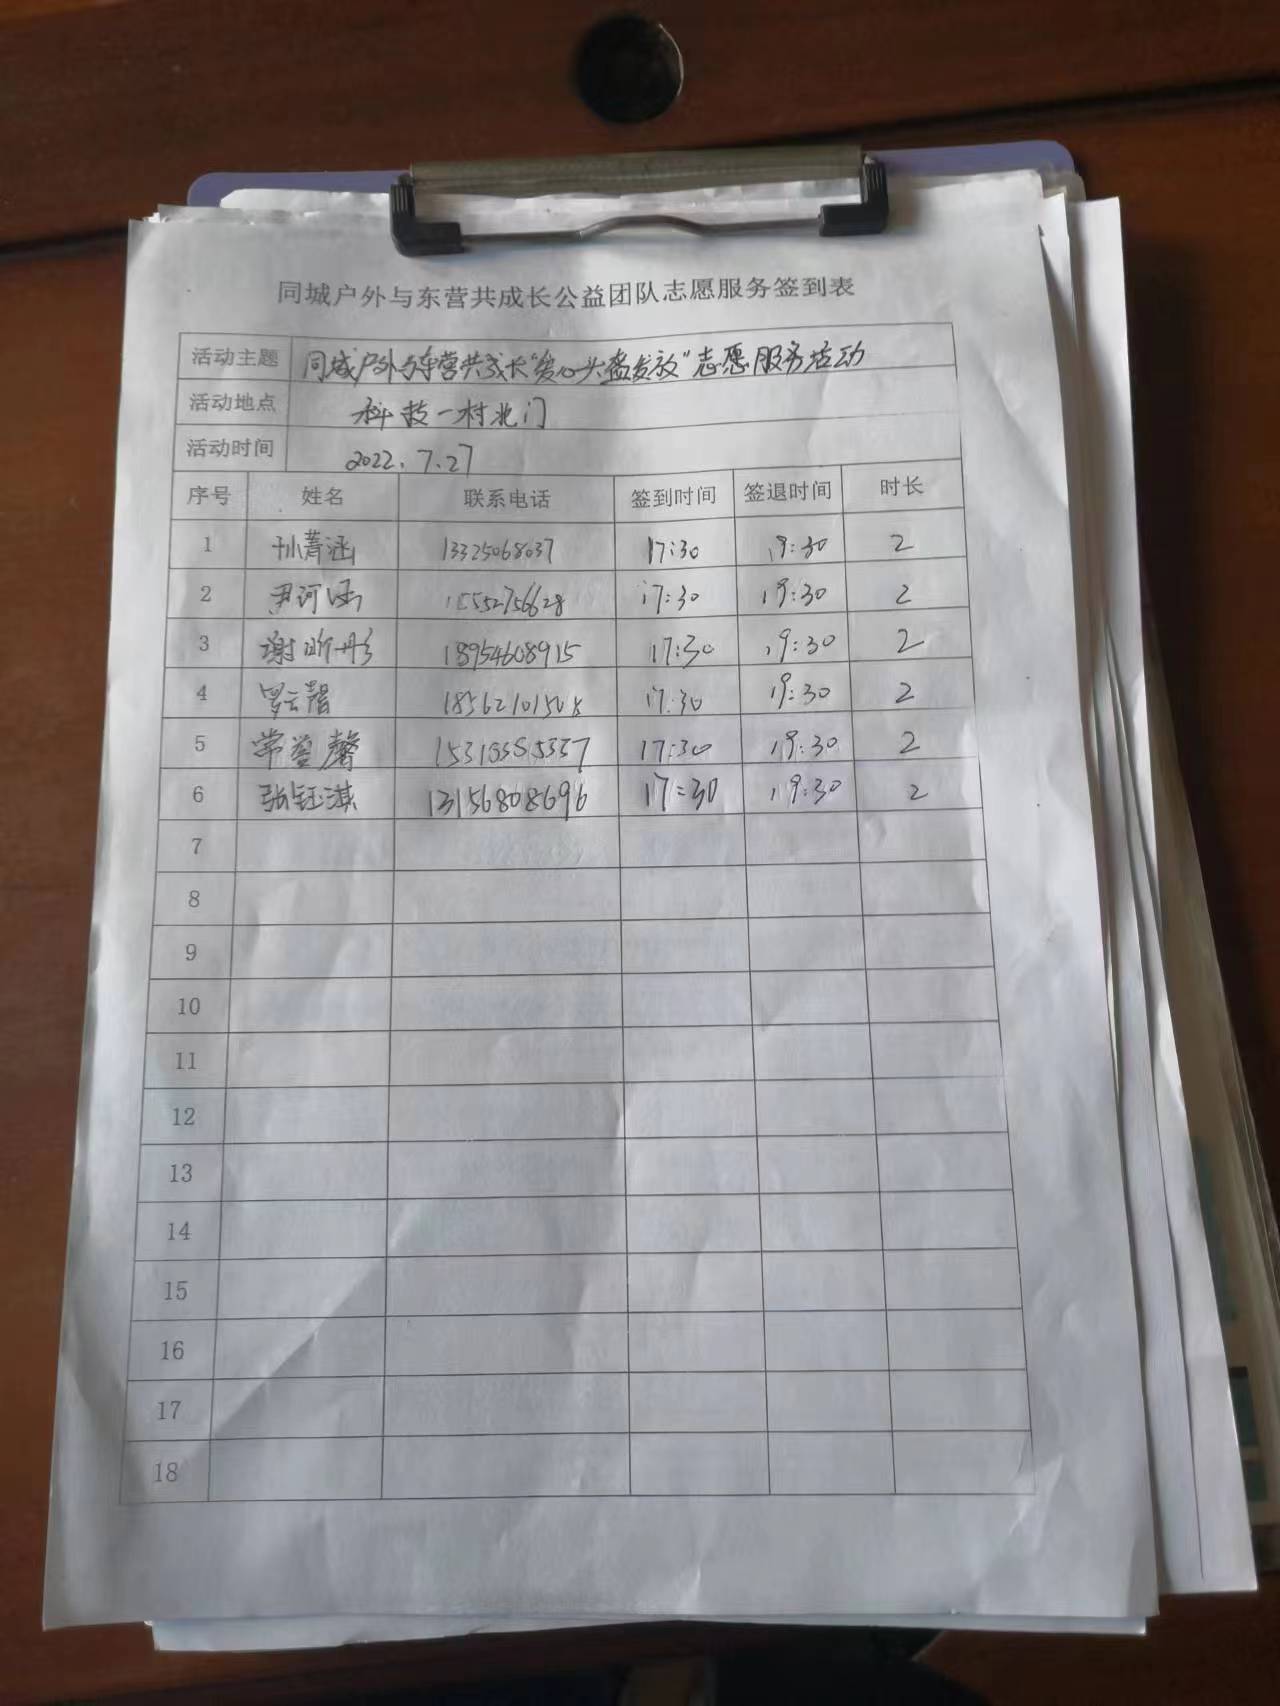 同城户外与东营共成长公益团队志愿服务签到表
活动主题 同城户外与东营共成长“爱心头盔发放”志愿服务活动
活动地点 科技一村北门
活动时间 2022.7.27
序号 姓名 联系电话 签到时间 签退时间 时长
1 孙菁涵 13325068037 17:30 19:30 2
2 尹河涵 15552756628 17:30 19:30 2
3 谢昕彤 18954608915 17:30 19:30 2
4 罗云馨 17:30 19:30 2
5 常 馨 17:30 19:30 2
6 张钰淇 13156808696 17:30 19:30 2
7
8
9
10
11
12
13
14
15
16
17
18